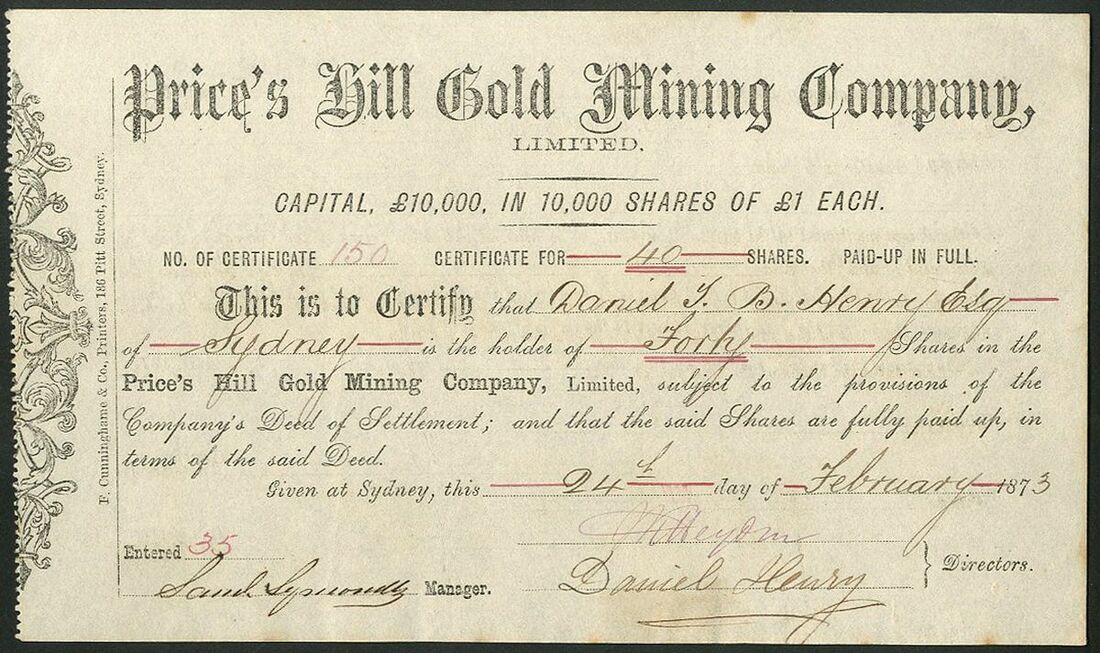 Price's Hill Gold Mining Company,
LIMITED.
CAPITAL, £10,000, IN 10,000 SHARES OF £1 EACH.
NO. OF CERTIFICATE 150 CERTIFICATE FOR 40 SHARES. PAID-UP IN FULL.
This is to Certify that Daniel T. B. Henry Esq
of Sydney is the holder of Forty Shares in the
Price's Hill Gold Mining Company, Limited, subject to the provisions of the
Company's Deed of Settlement; and that the said Shares are fully paid up, in
terms of the said Deed.
Given at Sydney, this 24th day of February 1873
Entered 35
Saml. Manager.
Daniel Henry
Directors.
F. Cunninghame & Co., Printers, 186 Pitt Street, Sydney.